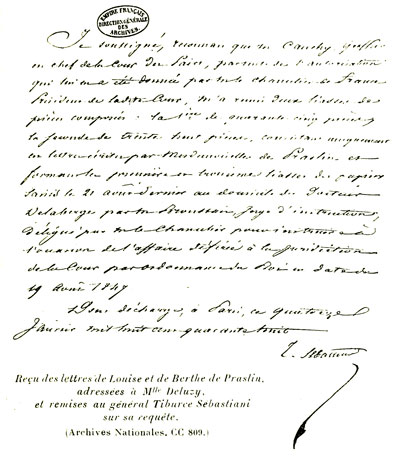 EMPIRE FRANÇAIS
DIRECTION GÉNÉRALE
DES
ARCHIVES
Je soussigné, reconnais que m Cauchy greffier
en chef de la Cour des Pairs, par suite de l'autorisation
qui lui en a été donnée par m. le chancelier de France
Président de ladite Cour, m'a remis deux liasses de
pièces composées: la 1ère de quarante cinq pièces,
la seconde de trente huit pièces, consistant uniquement
en lettres écrites par Mesdemoiselles de Praslin et
formant les première et troisième liasses des papiers
saisis le 21 août dernier au domicile du Docteur
Delaberge par m Broussais, Juge d'instruction,
délégué par m le Chancelier pour instruire à
l'occasion de l'affaire déférée à la juridiction
de la Cour par ordonnance du Roi en date du
19 août 1847
Dont décharge, à Paris, ce quatorze
Janvier mil huit cent quarante huit
Reçu des lettres de Louise et de Berthe de Praslin,
adressées à Mlle Deluzy,
et remises au général Tiburce Sebastiani
sur sa requête.
(Archives Nationales, CC 809.)